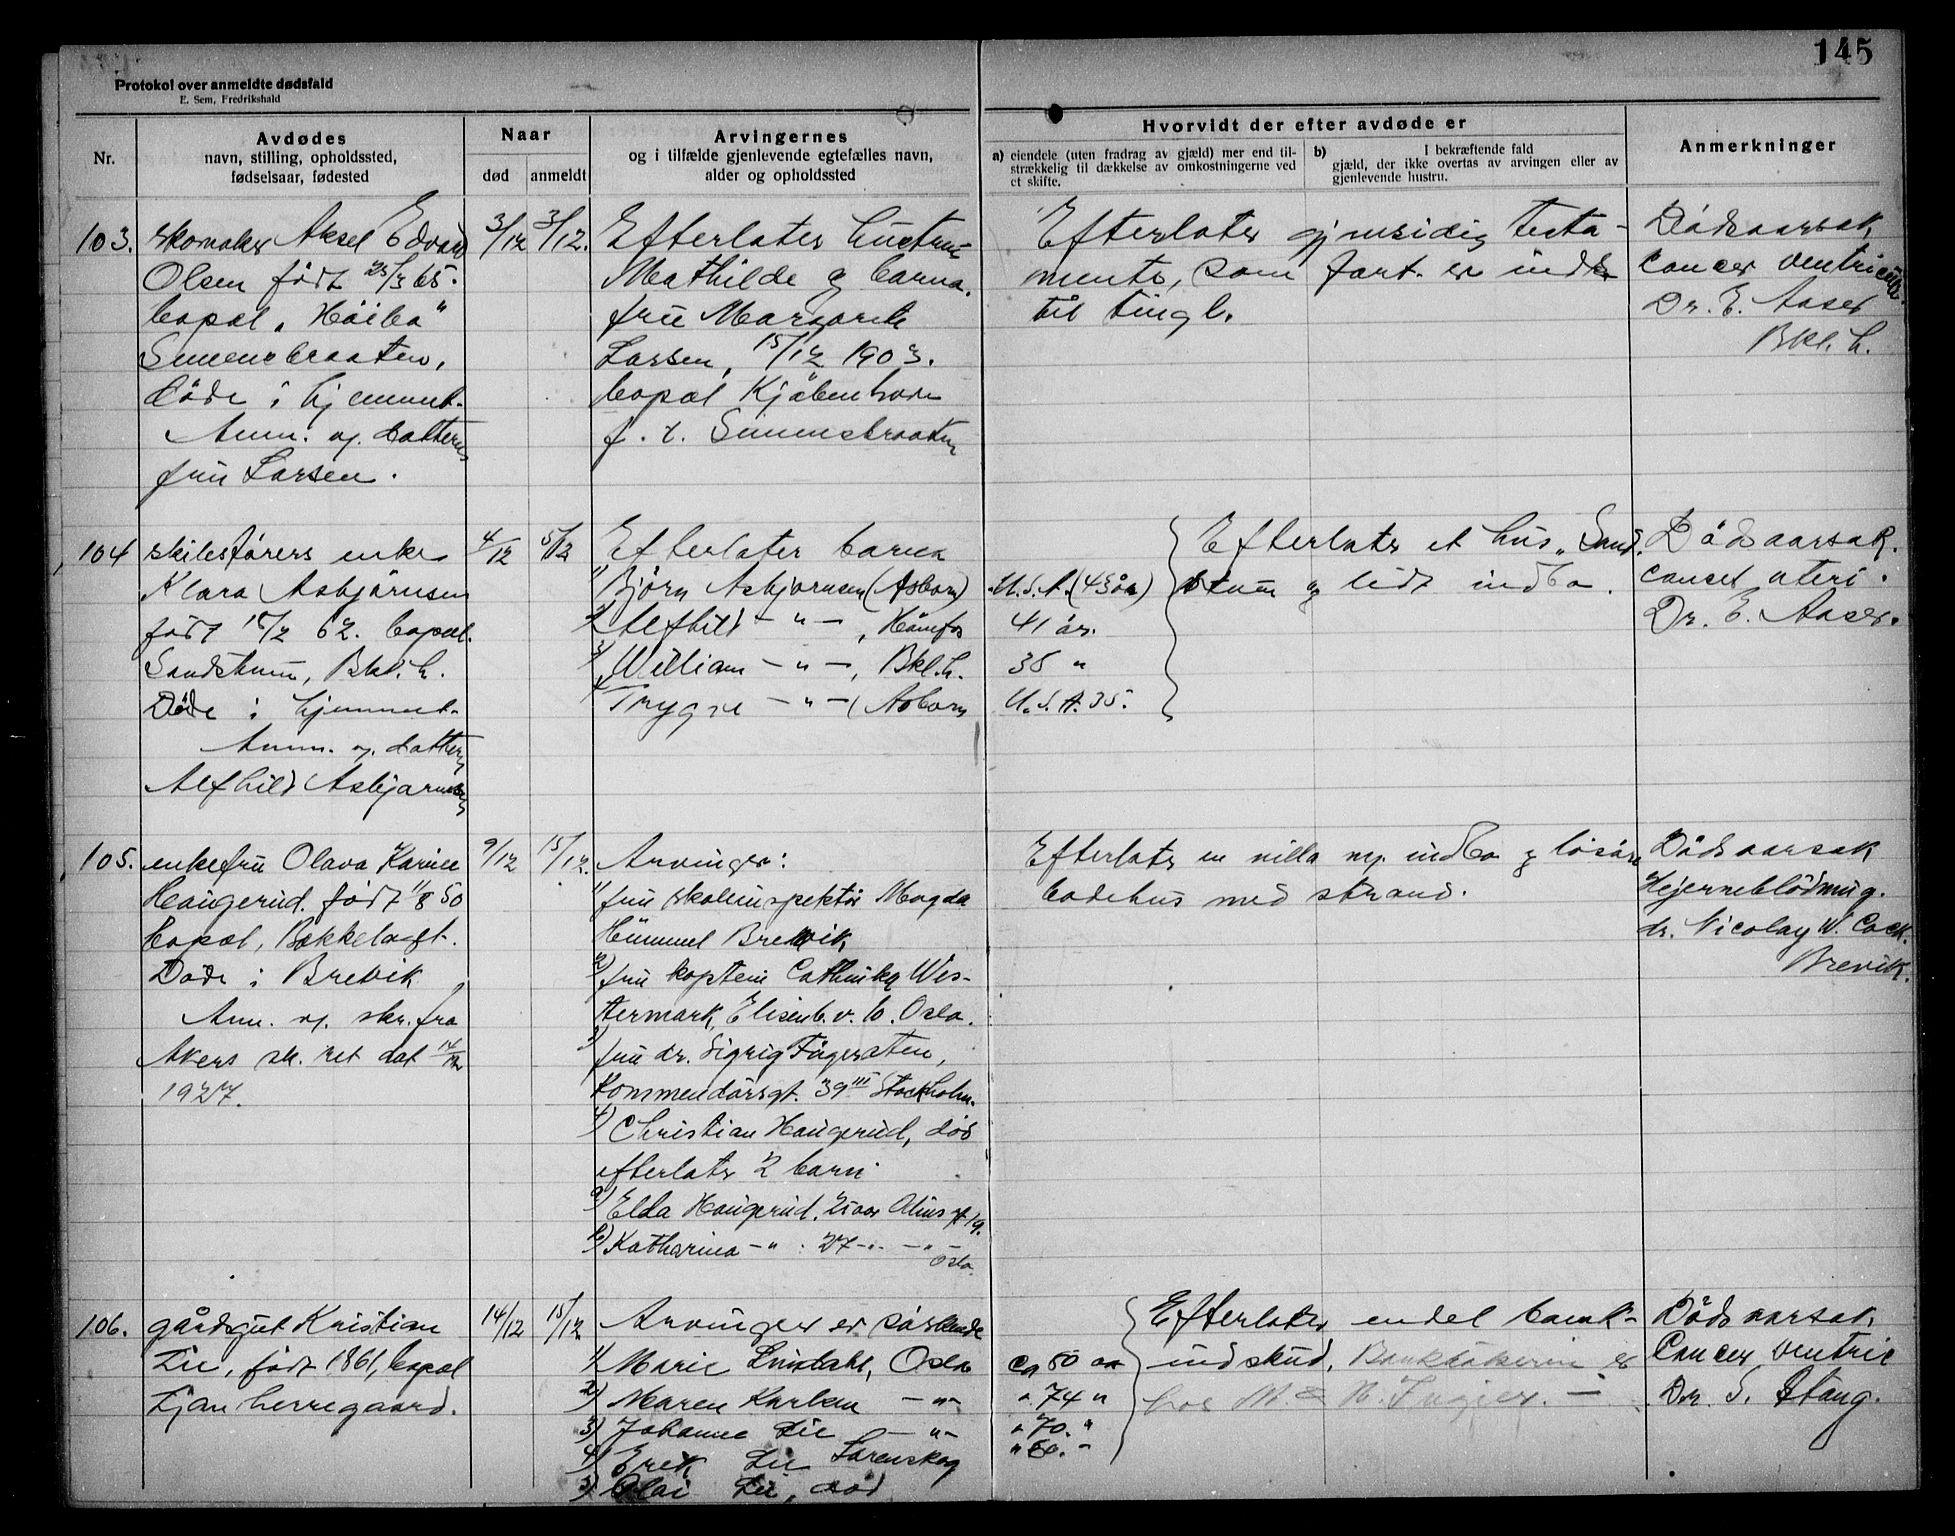 145
Protokol over anmeldte dødsfald
E. Sem, Fredrikshald
Nr.
Avdødes
navn, stilling, opholdssted,
fødselsaar, fødested
Naar
død
anmeldt
Arvingernes
og i tilfælde gjenlevende egtefælles navn,
alder og opholdssted
Hvorvidt der efter avdøde er
a) eiendele (uten fradrag av gjæld) mer end til-
strækkelig til dækkelse av omkostningerne ved
et skifte.
b) I bekræftende fald
gjæld, der ikke overtas av arvingen eller av
gjenlevende hustru.
Anmerkninger
103.
skomaker Aksel Edvard
Olsen født 25/3 65.
bopæl „Höibo"
Simensbraaten,
döde i hjemmet.
Anm. av datteren
fru Larsen.
3/12
3/12.
Efterlater hustru
Mathilde og barna.
fru Margarete
Larsen, 15/12 1903.
bopæl Kjøbenhavn
f. t. Simensbraaten
Efterlater gjensidig testa-
mente, som fort. er inds
til tingl.
Dödsaarsak
cancer ventriculi.
Dr. E. Aaser
Bkl. h.
104
enke
Klara Asbjörnsen
födt 15/2 62. bopæl.
Sandstuen, Bkl. h.
Döde i hjemmet.
Anm. av datteren
Alfhild Asbjørnsen
4/12
5/12
Efterlater barna
1) Björn Asbjørnsen (Asborn) U.S.A. (43 år)
2) Alfhild - " - , Hönefos 41 år.
3) William - " - , Bkl. h. 38 "
4) Trygve - " - (Asborn U.S.A. 35.
Efterlater et hus „Sand-
stuen og lidt indbo.
Dödsaarsak.
cancer uteri.
Dr. E. Aaser.
105.
enkefru Olava Karine
Haugerud. født 1/8 50
bopæl, Bækkelaget.
Döde i Brevik
Anm. av. skr. fra
Akers sk. ret dat 14/12
1927.
9/12
15/12.
Arvinger:
1) fru skoleinspektör Magda
Hummel Brevik
2) fru kaptein Cathinka Wes-
termark, Elisenb. v. 6. Oslo.
3) fru dr. Sigrig
Kommendörsgt. 39 III Stockholm.
4) Christian Haugerud, död
efterlater 2 barn
a) Elda Haugerud. 25 aar 19.
b) Katharina - " - 27 - " - - " -
Oslo.
Efterlater en villa m. indbo og lösöre
badehus med strand.
Dödsaarsak
Hjerneblödning.
dr. Nicolay W. Cock.
Brevik.
106.
gårdsgut Kristian
Lie, födt 1861, bopæl
Ljan herregaard.
14/12
15/12
Arvinger er söskende
1) Marie Lindahl, Oslo ca 80 aar
2) Maren Karlsen - " - " 74 "
3) Johanne Lie - " - " 70. "
4) Erik Lie Lørenskog " 60. "
5) Olai Lie, död
Efterlater endel bank-
indskud. Bankbökerne er
hos M & H. Ingier.
Dödsaarsak
Cancer ventric
Dr. S. Stang.